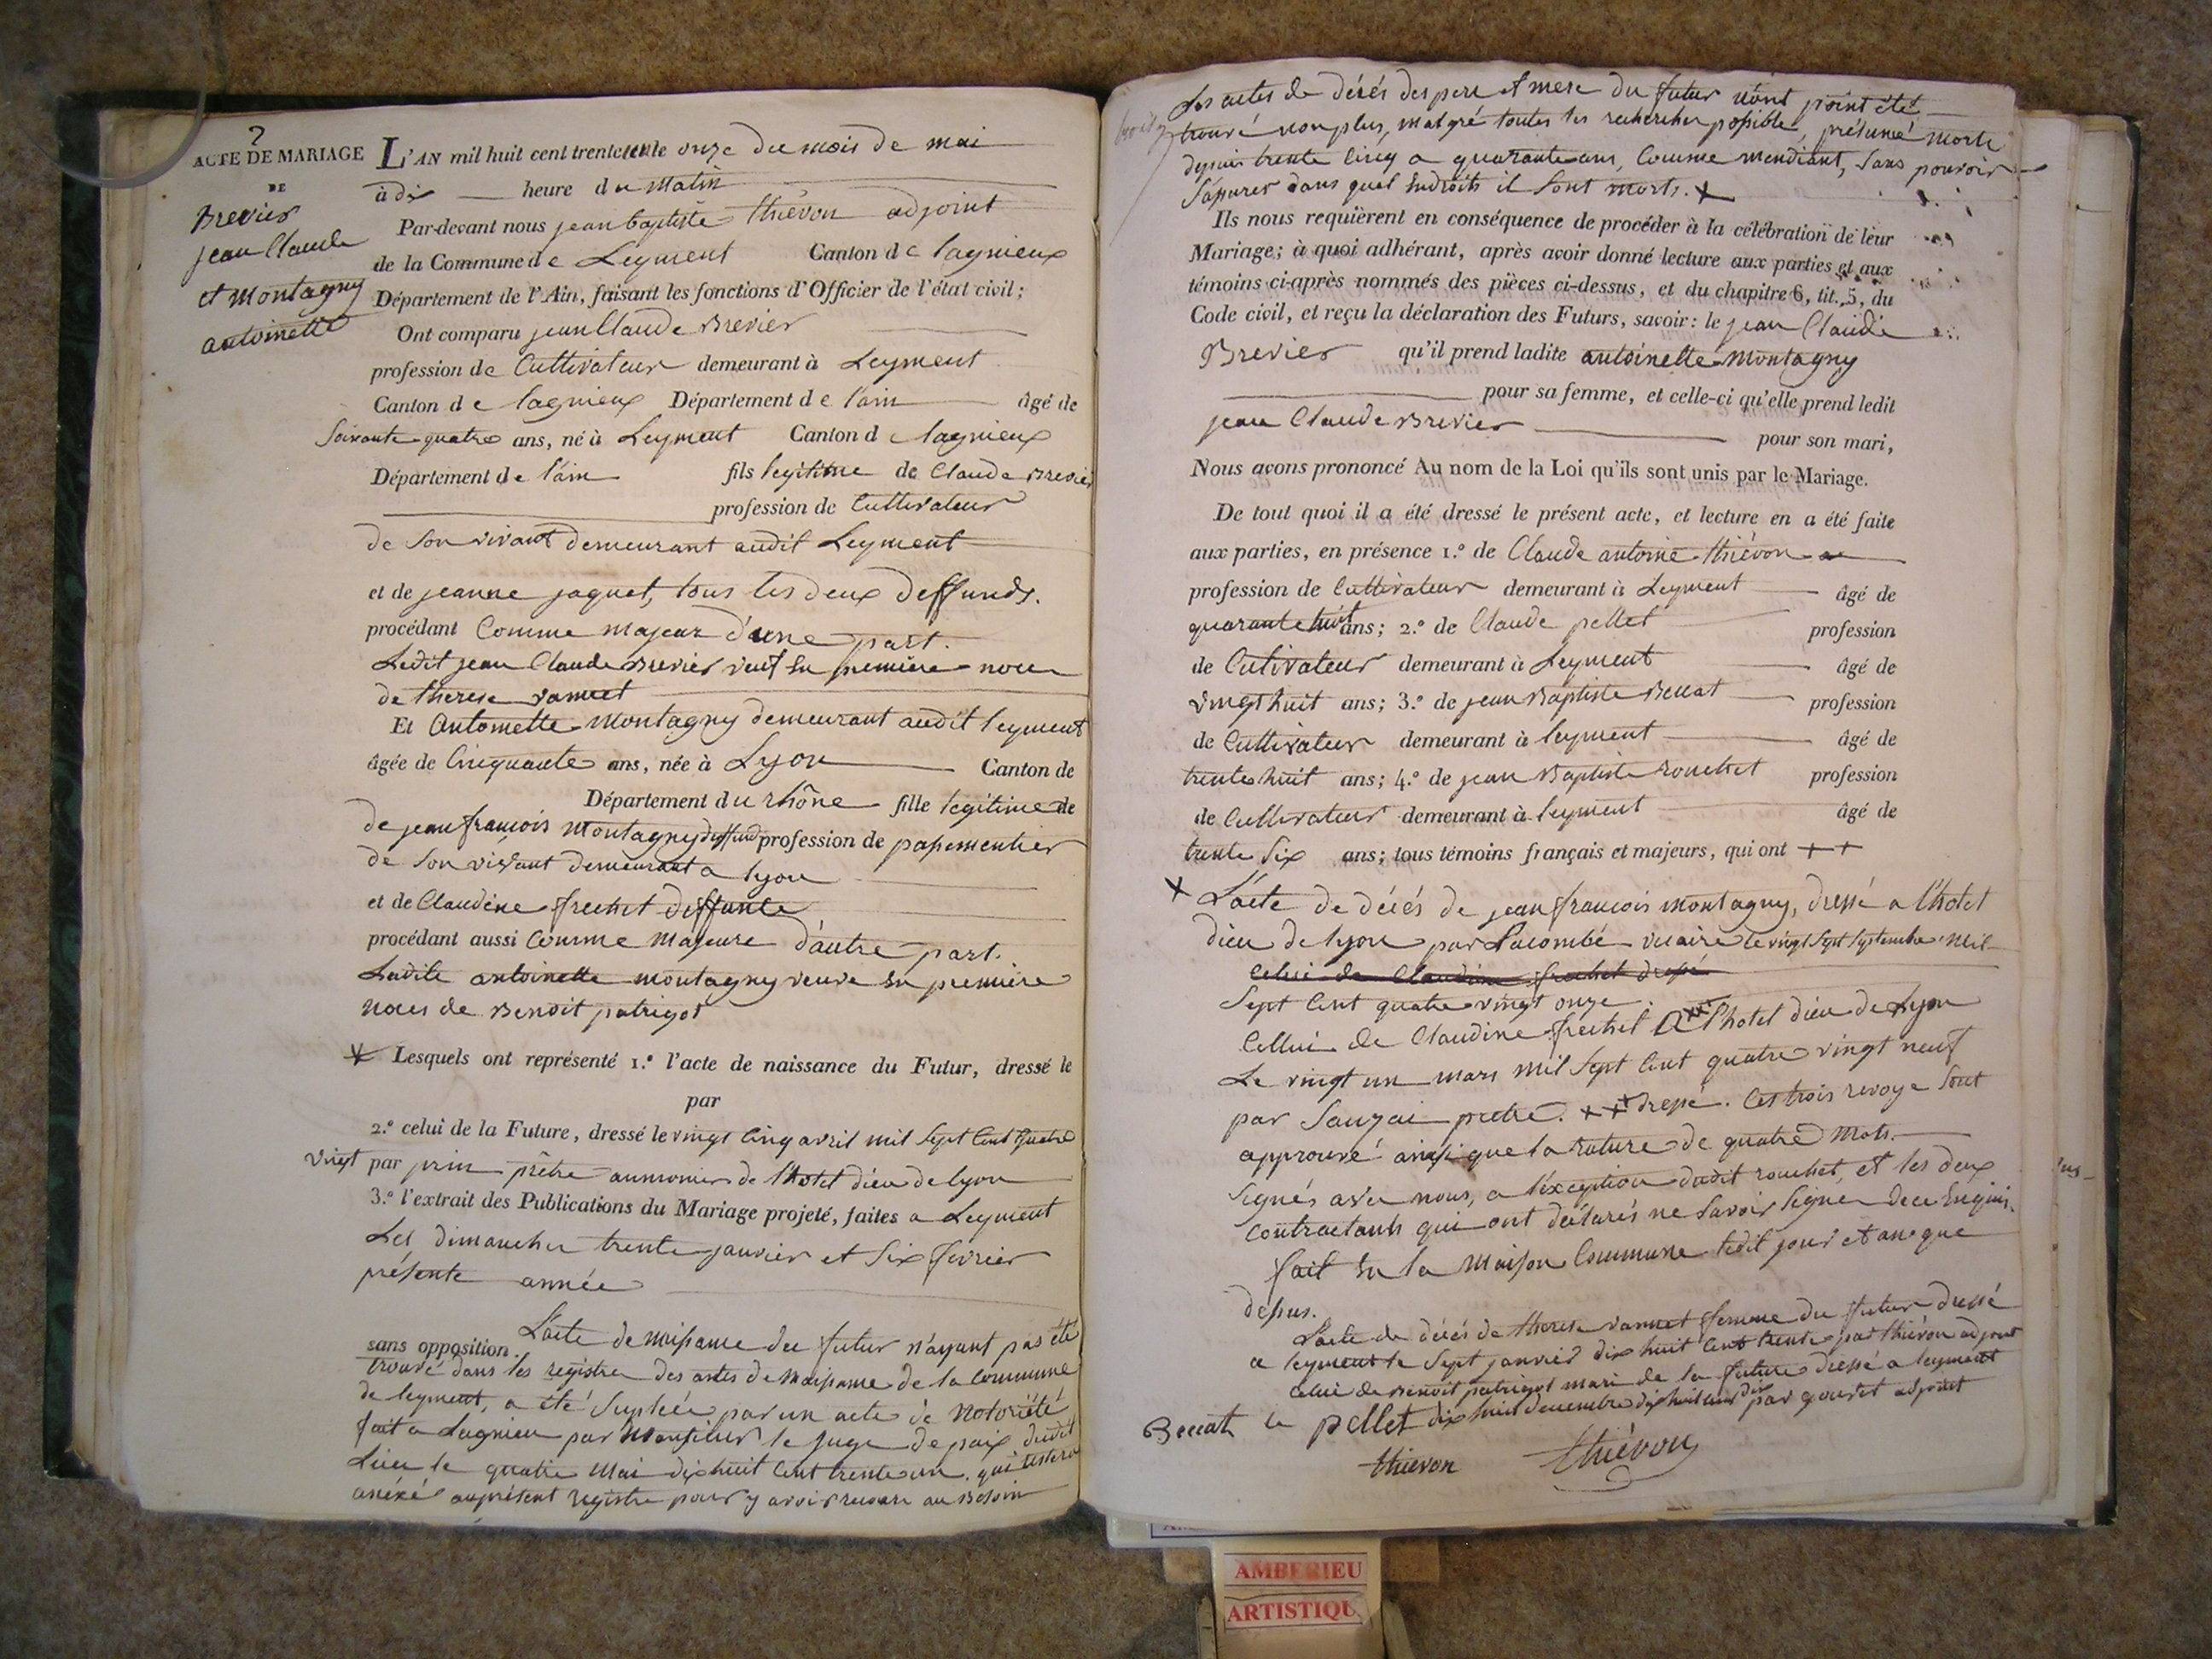 2
ACTE DE MARIAGE
DE
Brevier
jean Claude
et Montagny
antoinette
L'AN mil huit cent trente un le onze du mois de mai
à dix heure du matin
Par-devant nous jean baptiste thiévon adjoint
de la Commune de Leyment Canton de lagnieux
Département de l'Ain, faisant les fonctions d'Officier de l'état civil;
Ont comparu jean Claude Brevier
profession de Cultivateur demeurant à Leyment
Canton de lagnieux Département de l'ain âgé de
Soixante quatre ans, né à Leyment Canton de lagnieux
Département de l'ain fils legitime de Claude Brevier
profession de Cultivateur
de Son vivant demeurant audit Leyment
et de jeanne jaquet, tous les deux deffunds.
procédant Comme majeur d'une part.
Ledit jean Claude Brevier veuf en première noce
de therese vannet
Et Antoinette Montagny demeurant audit leyment
âgée de Cinquante ans, née à Lyon Canton de
Département du rhône fille legitime de
de jean françois Montagny deffund profession de papementier
de Son vivant demeurant a lyon
et de Claudine frechet deffunte
procédant aussi Comme Majeure d'autre part.
Ladite antoinette montagny veuve en première
noces de Benoit patrigot
Lesquels ont représenté 1.° l'acte de naissance du Futur, dressé le
par
2.° celui de la Future, dressé le vingt Cinq avril mil Sept Cent quatre
vingt par prin prêtre aumonier de l'hotel dieu de lyon
3.° l'extrait des Publications du Mariage projeté, faites a Leyment
Les dimanches trente janvier et Six fevrier
présente année
sans opposition. L'acte de naissance du futur n'ayant pas été
trouvé dans les registre des actes de naissance de la Commune
de leyment, a été Supléé par un acte de notoriété
fait a Lagnieu par Monsieur le juge de paix dudit
Lieu le quatre Mai dix huit Cent trente un qui restera
anéxé au présent registre pour y avoir recours au Besoin
Les actes de décés des pere et mere du futur n'ont point été
trouvé non plus, malgré toutes les recherches possible, présumé morts
depuis trente Cinq a quarante ans, Comme mendiant, Sans pouvoir
S'assurer dans quel Endroits il Sont morts. +
Ils nous requièrent en conséquence de procéder à la célébration de leur
Mariage; à quoi adhérant, après avoir donné lecture aux parties et aux
témoins ci-après nommés des pièces ci-dessus, et du chapitre 6, tit. 5, du
Code civil, et reçu la déclaration des Futurs, savoir: le jean Claude
Brevier qu'il prend ladite antoinette Montagny
pour sa femme, et celle-ci qu'elle prend ledit
jean Claude Brevier pour son mari,
Nous avons prononcé Au nom de la Loi qu'ils sont unis par le Mariage.
De tout quoi il a été dressé le présent acte, et lecture en a été faite
aux parties, en présence 1.° de Claude antoine thiévon
profession de Cultivateur demeurant à Leyment âgé de
quarante huit ans; 2.° de Claude pellet profession
de Cultivateur demeurant à Leyment âgé de
vingt huit ans; 3.° de jean Baptiste Beccat profession
de Cultivateur demeurant à leyment âgé de
trente huit ans; 4.° de jean Baptiste rouchet profession
de Cultivateur demeurant à leyment âgé de
trente Six ans; tous témoins français et majeurs, qui ont ++
+ L'acte de décés de jean françois montagny, dressé a l'hotel
dieu de lyon par Lacombé vicaire le vingt Sept Septembre Mil
celui de Claudine frechet dressé
Sept Cent quatre vingt onze.
Cellui de Claudine frechet a l'hotel dieu de Lyon
Le vingt un mars mil Sept Cent quatre vingt neuf
par Sauzai pretre. ++ dressé. Ces trois revoye Sont
approuvé ainsi que la rature de quatre Mots.
Signés avec nous, a l'éxception dudit rouchet, et les deux
contractants qui ont déclarés ne Savoir Signer de ce Enquis.
fait En la Maison Commune ledit jour et an que
dessus.
L'acte de décés de therese vannet femme du futur dressé
a leyment le Sept janvier dix huit Cent trente par thiévon adjoint
celui de Benoit patrigot mari de la future dressé a leyment
dix huit decembre dix huit cent dix par gourdet adjoint
Beccat pellet
thievon thiévon
AMBERIEU
ARTISTIQU